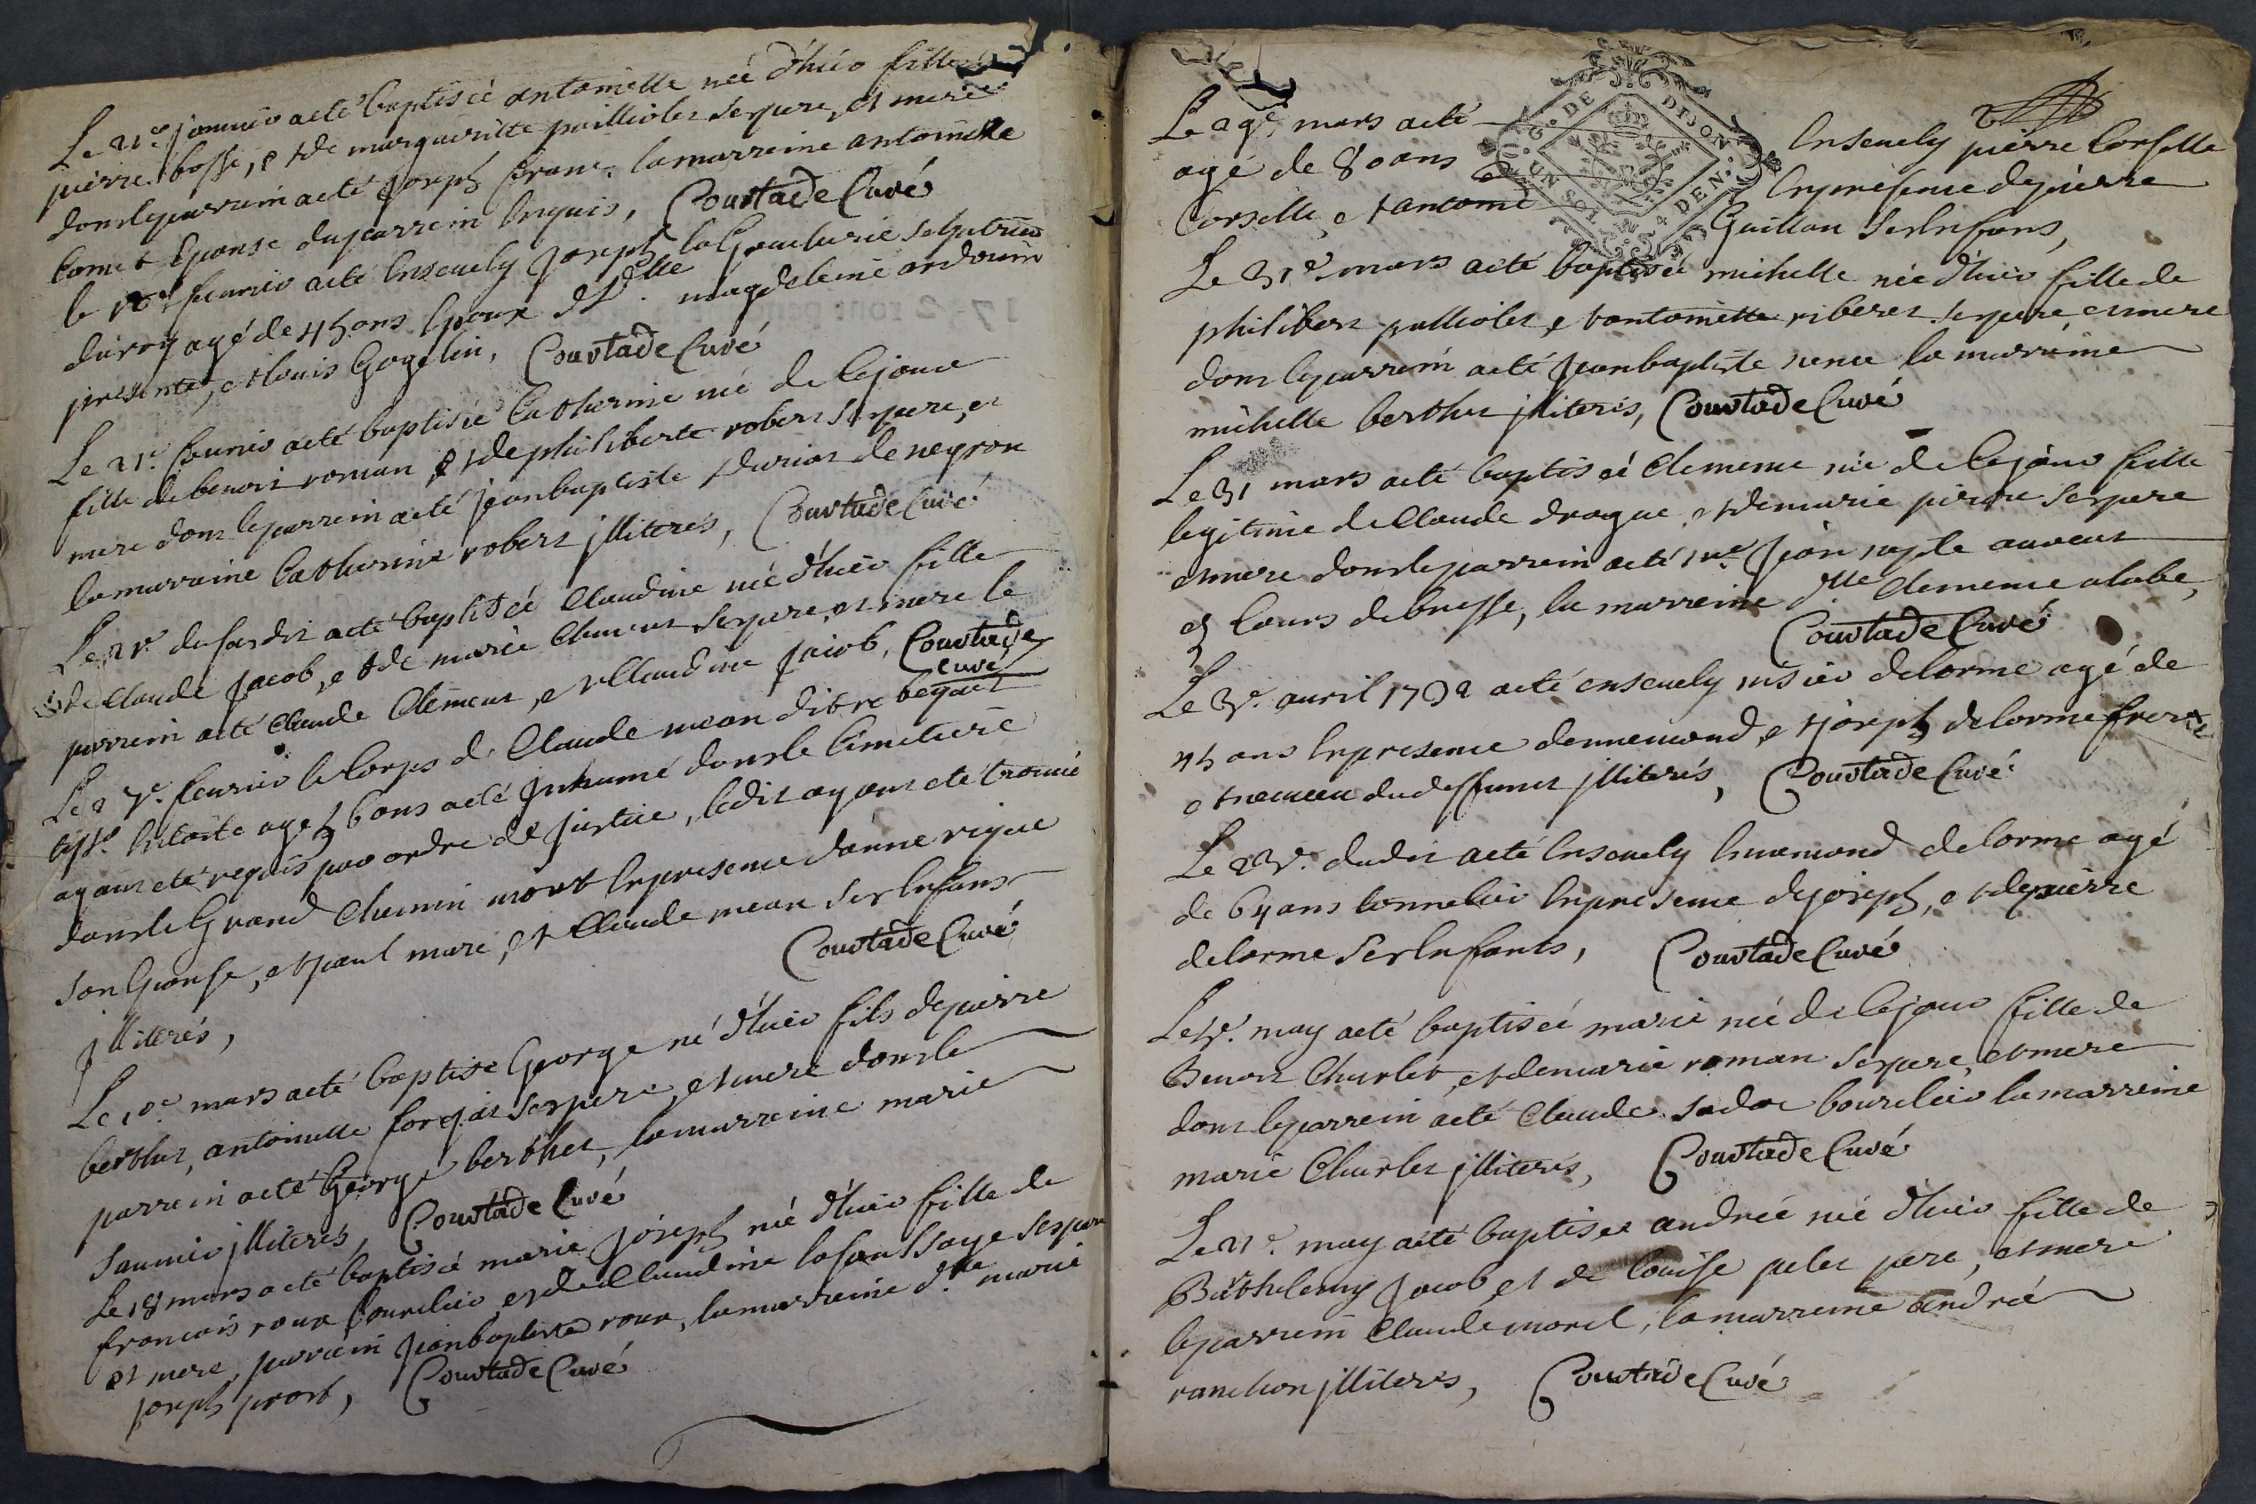 Le 21e janvier a eté baptisèé antoinette neé d'hiér fille de
pierre bosse, et de margueritte paillioler ses pere, et mere
dont le parrein a eté joseph franc. la marreine antoinette
Comet epouse du parrein requis, Courtade Curé
le 16e fevrier a eté ensevely joseph la
du roy agé de 45 ans epoux de dlle. magdeleine ardouin
presente, et louis Gogelin, Courtade Curé
Le 21e. fevrier a eté baptisèe Catherine neé de ce jour
fille de benoit roman et de philiberte robert ses pere, et
mere dont le parrein a eté jean baptiste durior de neyron
la marraine Catherine robert illiterés, Courtade Curé
Le 21e. du susdit a eté baptiseé Claudine neé d'hier fille
de Claude jacob, et de marie Clement ses pere, et mere le
parrein a eté Claude Clément, et Claudine jacob, Courtade
curé
Le 27e. fevrier le Corps de Claude mean dit
agé 56 ans a eté inhumé dans le Cimetiere
ayant eté requis par ordre de justice, ledit ayant eté trouvé
dans le Grand Chemin mort en presence d'anne
son epouse, et paul mare, et Claude mean ses enfans
illiterés, Courtade Curé
Le 10e mars a eté baptise George né d'hier fils de pierre
berthet, antoinette ses pere, et mere dont le
parrein a eté George berthet, la marreine marie
saunier illiterés, Courtade Curé
Le 18 mars a eté baptisée marie joseph neé d'hier fille de
francois roux bourelier, et de Claudine lasaussaye ses pere
et mere, parrein jean baptiste roux, la marreine dlle marie
joseph prost, Courtade Curé
2
Le 29e. mars a eté ensevely pierre Corsette
agé de 80 ans en presence de pierre
Corsette, et antoine Guillon ses enfans,
G. DE DIJON
UN SOL 4 DEN.
Le 31e. mars a eté baptiseé michelle née d'hier fille de
philibert pallioler, et antoinette riberet ses pere, et mere
dont le parrein a eté jean baptiste la marraine
michelle berthet illiterés, Courtade Curé
Le 31 mars a eté baptiseé Clemence neé de ce jour fille
legitime de Claude drague, et de marie ses pere
et mere dont le parrein a eté jean
cours de bresse, la marreine dlle Clemence alabe,
Courtade Curé
Le 3e. avril 1792 a eté ensevely delorme agé de
45 ans en presence d'ennemond, et joseph delorme freres
et neveu du deffunt illiterés, Courtade Curé
Le 23e. dudit a eté ensevely ennemond delorme agé
de 64 ans tonnelier en presence de joseph, et de pierre
delorme ses enfants, Courtade Curé
Le 5e. may a eté baptiseé marie neé de ce jour fille de
Benoit Charlet, et de marie roman ses pere, et mere
dont le parrein a eté Claude sadoc bourelier la marreine
marie Charlet illiterés, Courtade Curé
Le 21e. may a eté baptisee andreé neé d'hier fille de
Barthelemy jacob et de louise pere, et mere
le parrein Claude morel, la marreine andreé
ranchon illiterés, Courtade Curé